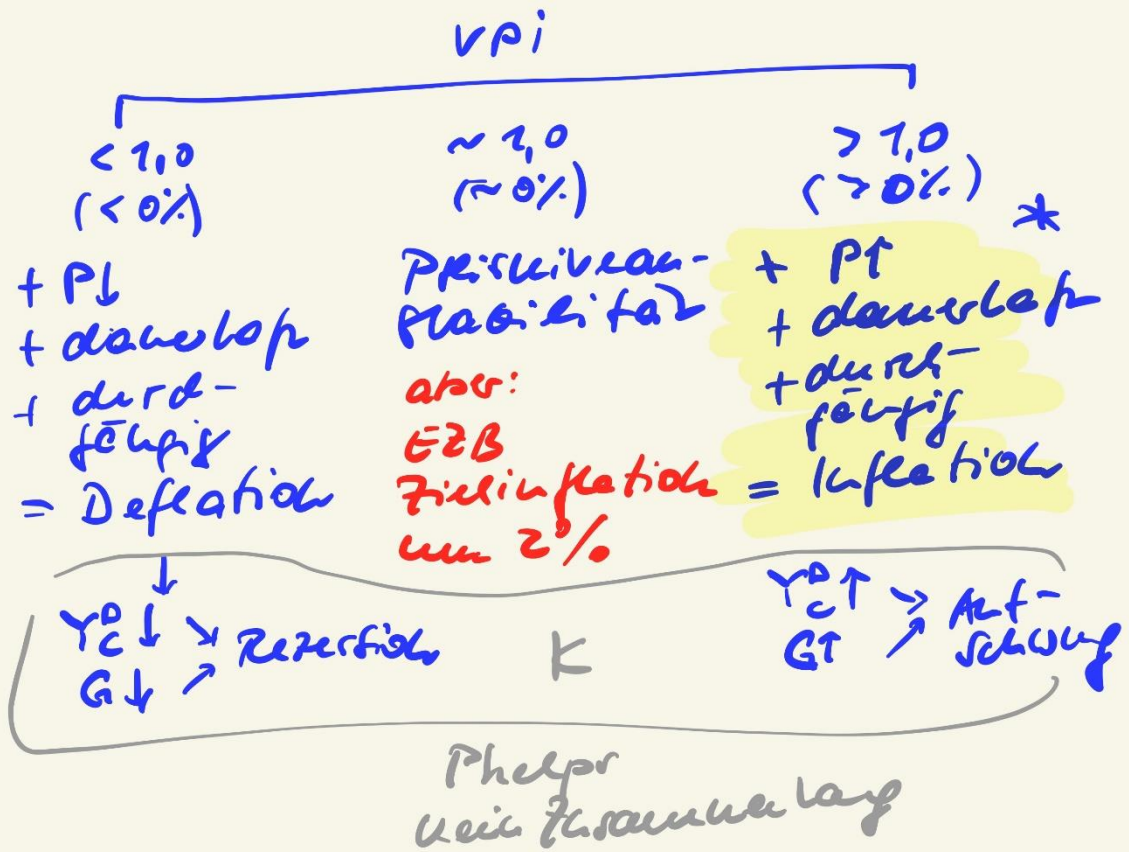 VPI
< 1,0
(< 0%)
+ P↓
+ dauerhaft
+ durch-
gängig
= Deflation
~ 1,0
(≈ 0%)
Preisniveau-
stabilität
aber:
EZB
Zielinflation
um 2%
> 1,0
(> 0%) *
+ P↑
+ dauerhaft
+ durch-
gängig
= Inflation
↓
Y^D_C ↓ ↘ Rezession
G ↓ ↗
K
Y^D_C ↑ ↘ Auf-
G↑ ↗ schwung
Phelps
kein Zusammenhang